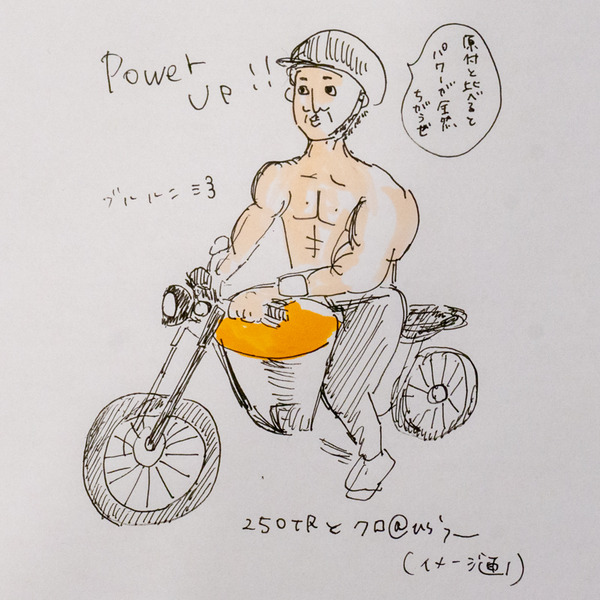 Power
UP!!
原付と比べると
パワーが全然、
ちがうぜ
ブルルン
250TRとクロ@ひらりー
(イメージ画1)